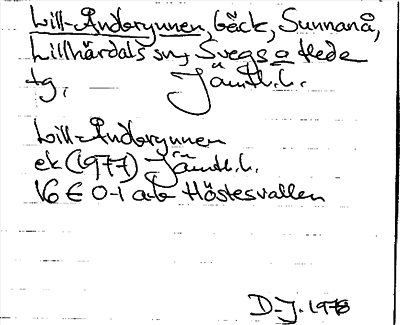 Lill-Åndorynnen, bäck, Sunnanå,
Lillhärdals sn, Svegs o Hede
tg, Jämtl.l.
Lill-Åndorynnen
ek (1977) Jämtl.l.
16 E 0-1 a-b Höstesvallen
D-J. 1978